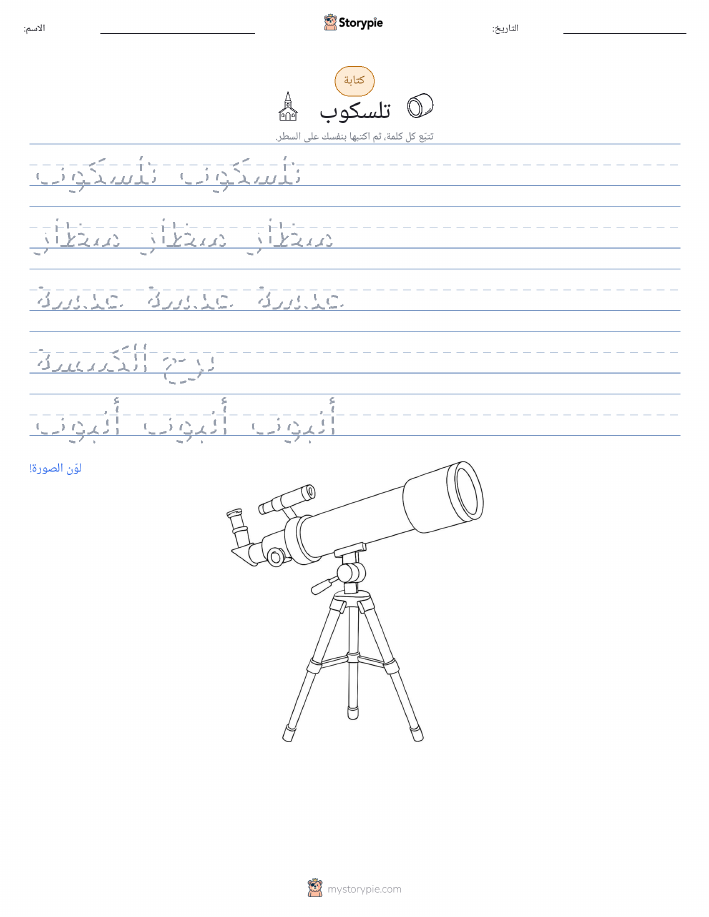 Storypie
الاسم:
التاريخ:
كتابة
تلسكوب
تتبّع كل كلمة، ثم اكتبها بنفسك على السطر.
تلسكوب تلسكوب
منظار منظار منظار
عدسة عدسة عدسة
برج الكنيسة
أنبوب أنبوب أنبوب
لوّن الصورة!
mystorypie.com